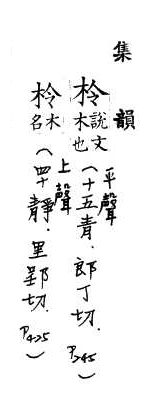 集韻
柃說文木也(十五青.郎丁切.P245)平聲
柃木名(四十靜.里郢切.P425)上聲